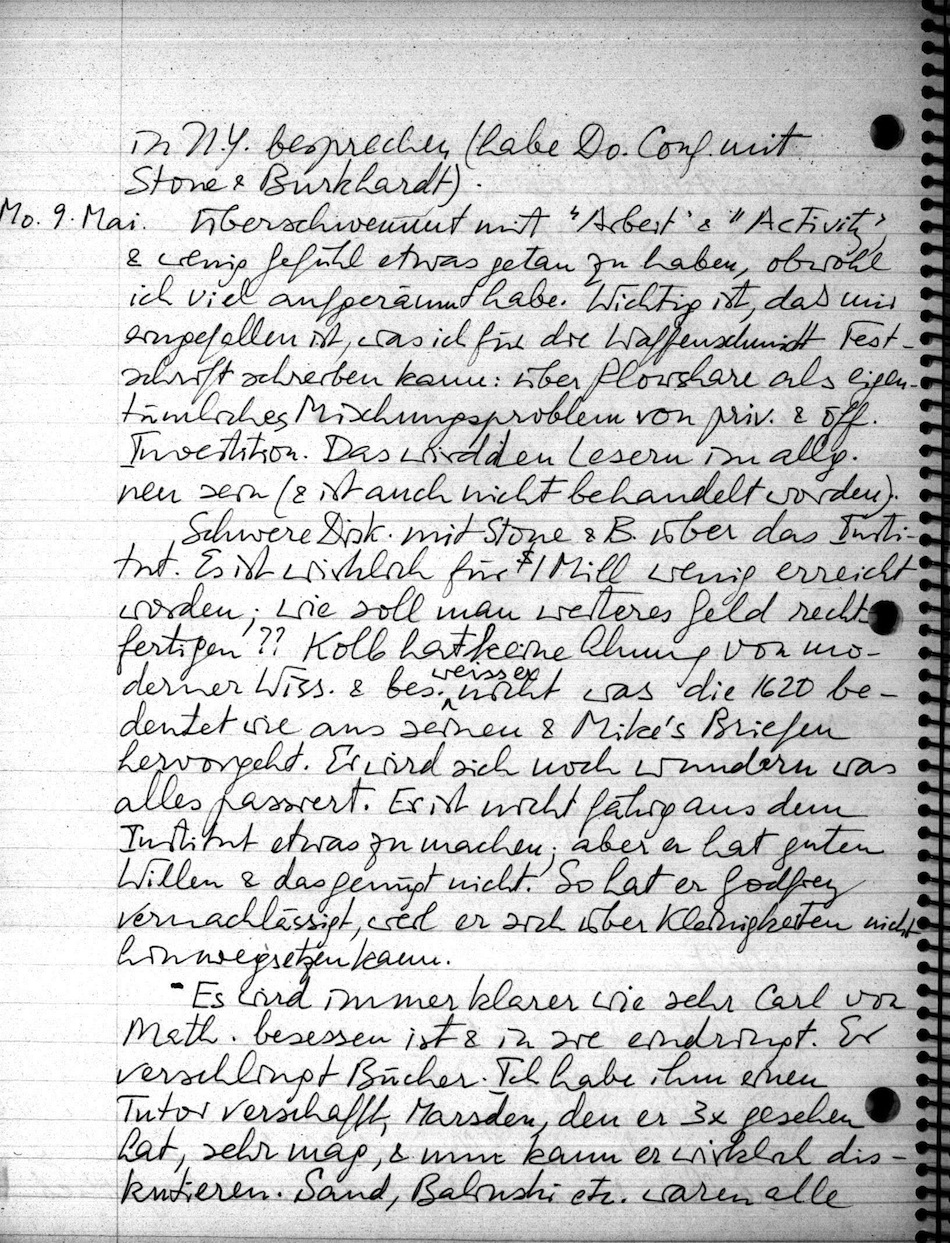 in N.Y. besprechen (habe Do. Conf. mit
Stone & Burkhardt).
Mo. 9. Mai. Überschwemmt mit "Arbeit" & "Activity",
& wenig Gefühl etwas getan zu haben, obwohl
ich viel aufgeräumt habe. Wichtig ist, das mir
eingefallen ist, was ich für die Waffenschmidt Fest-
schrift schreiben kann: über Plowshare als eigen-
tümliches Mischungsproblem von priv. & öff.
Investition. Das wird den Lesern im allg.
neu sein (& ist auch nicht behandelt worden).
Schwere Disk. mit Stone & B. über das Insti-
tut. Es ist wirklich für $1 Mill wenig erreicht
worden; wie soll man weiteres Geld recht-
fertigen?? Kolb hat keine Ahnung von mo-
derner Wiss. & bes. weiss er nicht was die 1620 be-
deutet wie aus seinen & Mike's Briefen
hervorgeht. Er wird sich noch wundern was
alles passiert. Er ist nicht fähig aus dem
Institut etwas zu machen; aber er hat guten
Willen & das genügt nicht. So hat er Godfrey
vernachlässigt, weil er sich über Kleinigkeiten nicht
hinwegsetzen kann.
- Es wird immer klarer wie sehr Carl von
Math. besessen ist & in sie eindringt. Er
verschlingt Bücher. Ich habe ihm einen
Tutor verschafft, Marsden, den er 3x gesehen
hat, sehr mag, & nun kann er wirklich dis-
kutieren. Sand, Balinski etc. waren alle